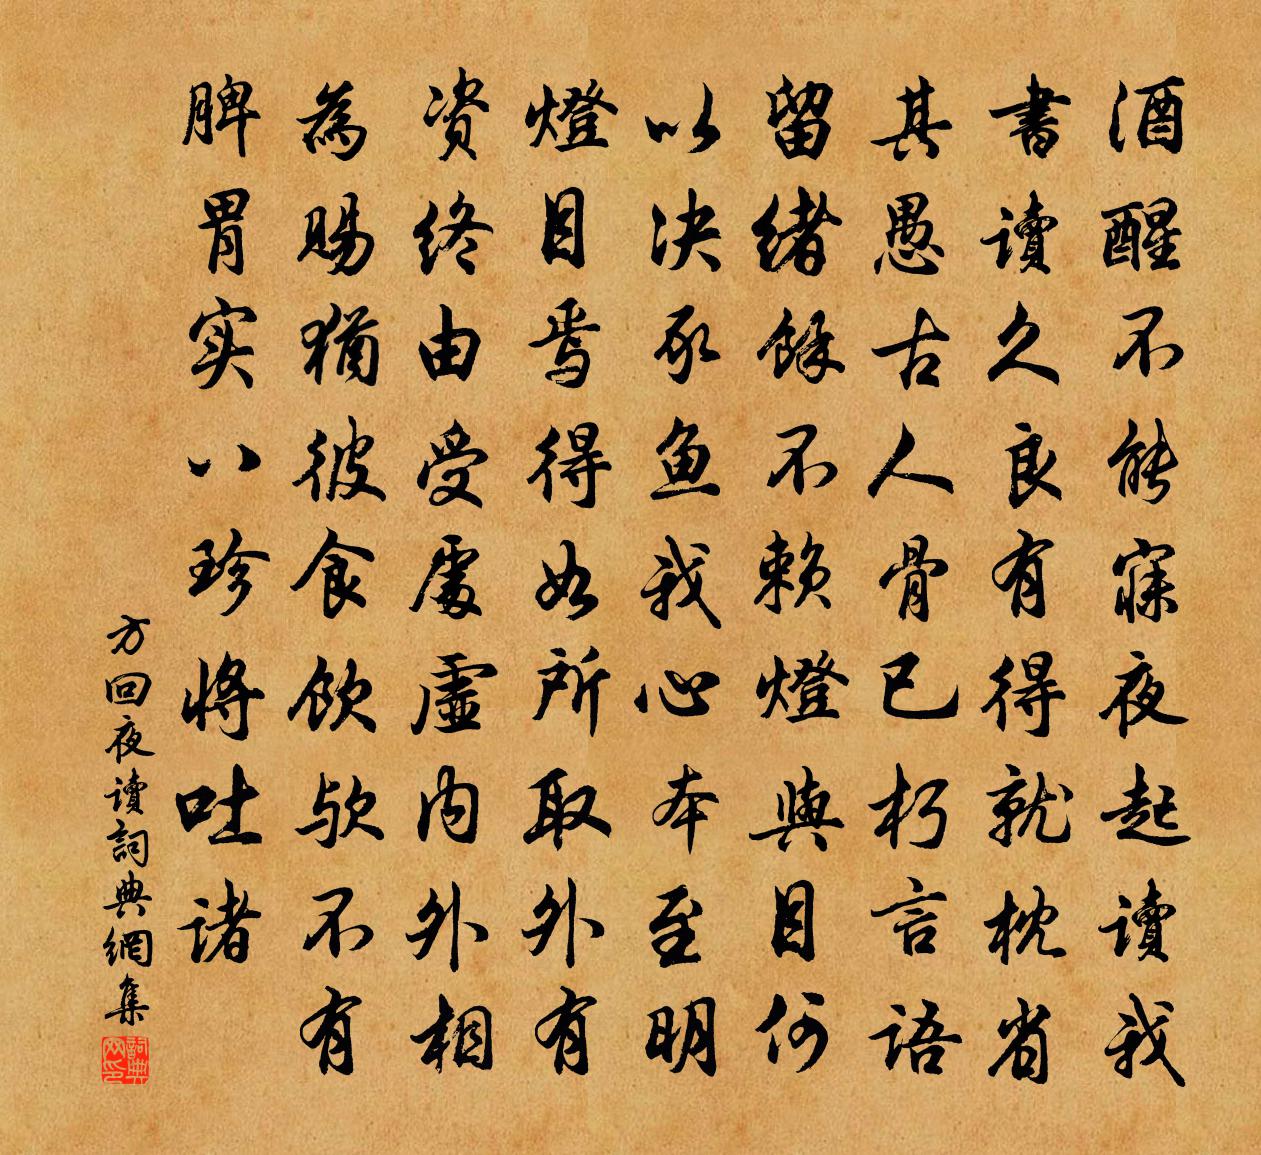 酒醒不能寐夜起讀我
書讀久良有得就枕省
其愚古人骨已朽言語
留緒餘不赖燈與目何
以决豕鱼我心本至明
燈目焉得如所取外有
资终由受處虛内外相
為赐猶彼食飲欤不有
脾胃实八珍將吐诸
方回夜讀詞典網集
詞典网印